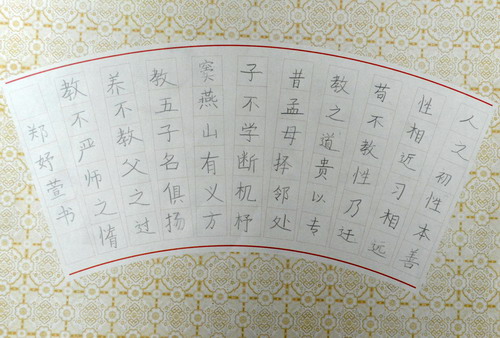 人之初性本善
性相近习相远
苟不教性乃迁
教之道贵以专
昔孟母择邻处
子不学断机杼
窦燕山有义方
教五子名俱扬
养不教父之过
教不严师之惰
郑妤萱书